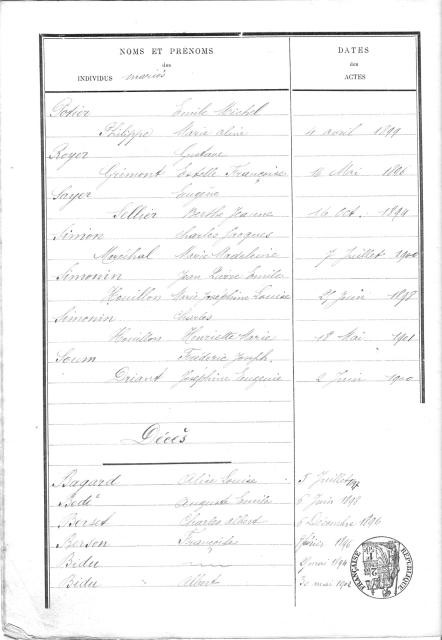 NOMS ET PRÉNOMS DATES
des des
INDIVIDUS mariés ACTES
Potier Emile Michel
Philippe Marie Aline 4 avril 1899
Royer Gustave
Grimont Estelle Françoise 16 Mai
Sayer Eugène
Sellier Berthe Jeanne 16 Oct. 1899
Simon Charles Jacques
Maréchal Marie Madeleine 7 Juillet 1900
Simonin Jean Pierre Emile
Houillon Marie Joséphine Louise 27 Juin 1898
Simonin Charles
Houillon Henriette Marie 18 Mai 1901
Soum Frédéric Joseph
Driant Joséphine Eugénie 2 Juin 1900
Décès
Bagard Alice Louise 5 Juillet
Auguste Emile 6 Juin 1898
Berset Charles Albert 6 Décembre 1896
Berson Françoise février
Bidu 9 mai
Bidu " Albert 30 mai
RÉPUBLIQUE FRANÇAISE